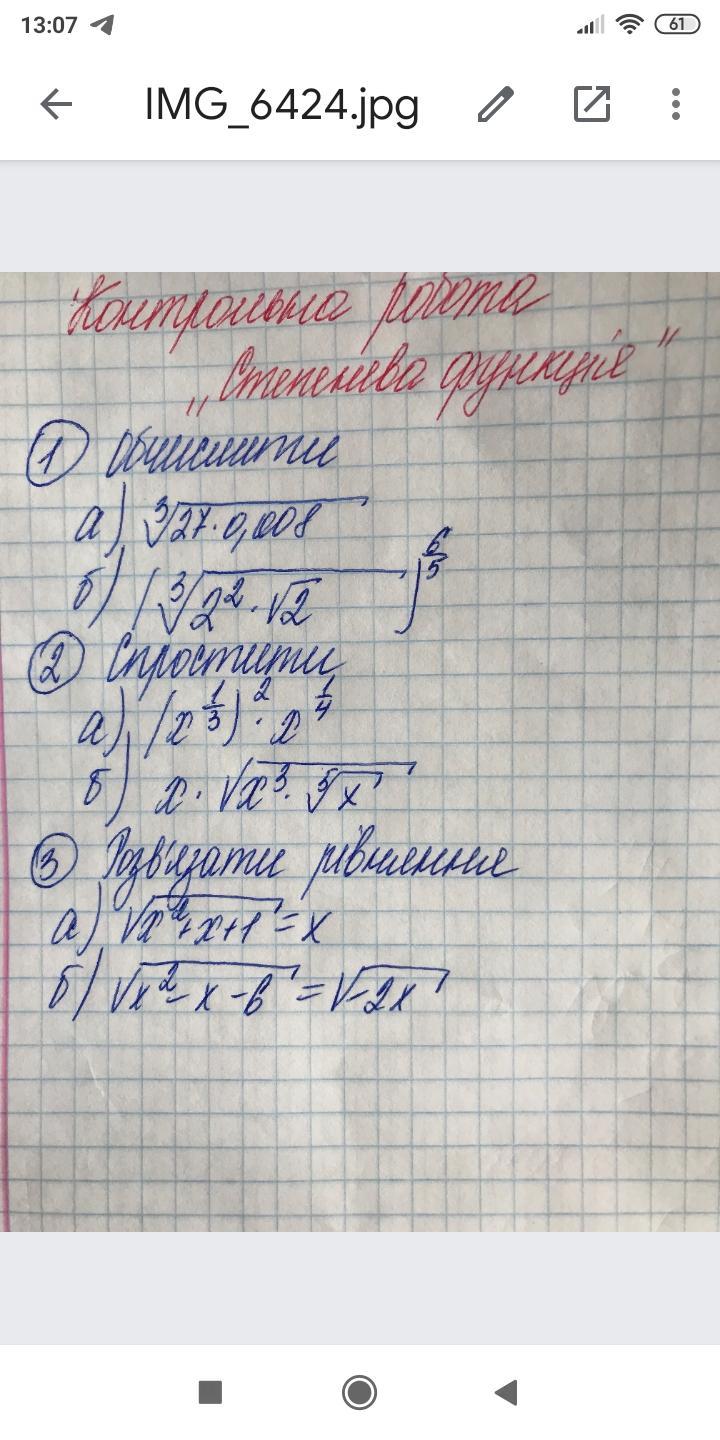 13:07
61
IMG_6424.jpg
Контрольна робота
„Степенева функція"
1 Обчислити
а) ∛(27·0,008)
б) (∛(2²·√2))^(6/5)
2 Спростити
а) (x^(1/3))²·x^(1/4)
б) x·√(x³·⁵√x)
3 Розв'язати рівняння
а) √(x²+x+1) = x
б) √(x²-x-6) = √(-2x)